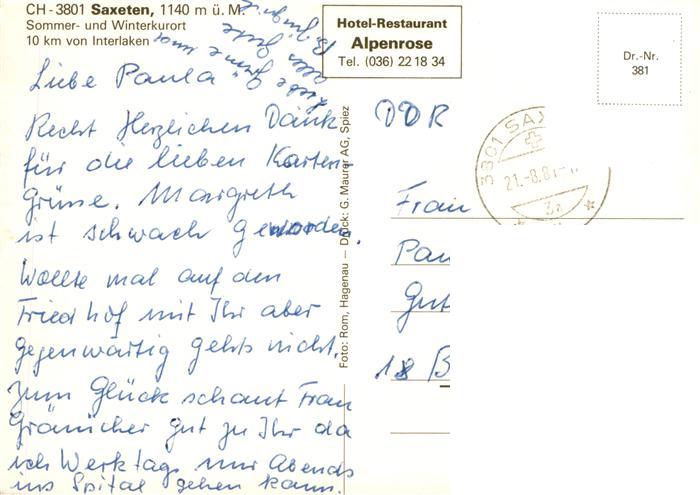 CH - 3801 Saxeten, 1140 m ü. M.
Sommer- und Winterkurort
10 km von Interlaken
Hotel-Restaurant
Alpenrose
Tel. (036) 22 18 34
Dr.-Nr.
381
Liebe Paula
Recht Herzlichen Dank
für die lieben Karten-
Grüsse. Margreth
ist schwach geworden.
Wollte mal auf den
Friedhof mit Ihr aber
gegenwärtig gehts nicht.
Zum Glück schaut Frau
gut zu Ihr da
ich Werktags nur Abends
ins Spital gehen kann.
Liebe Grüsse und
alles Gute
Foto: Rom, Hagenau — Druck: G. Maurer AG, Spiez
DDR
3801 SAX
21.-8.8
3a
Frau
Pau
Gut
18 B